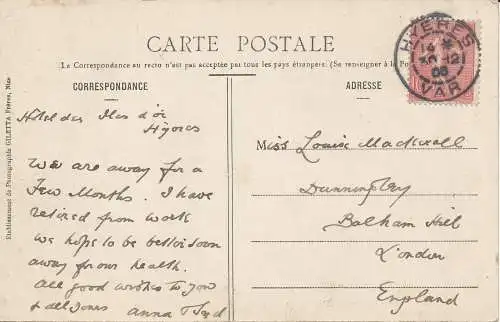 CARTE POSTALE
La Correspondance au recto n'est pas acceptée par tous les pays étrangers. (Se renseigner à la Po
CORRESPONDANCE
ADRESSE
HYÈRES
VAR
Hôtel des Iles d'or
Hyères
We are away for a
Few Months. I have
retired from work
We hope to be
soon
away for our health.
All good wishes to you
& all yours Anna
Miss Louise
Balham Hill
London
England
Etablissement de Photographie GILETTA Frères, Nice